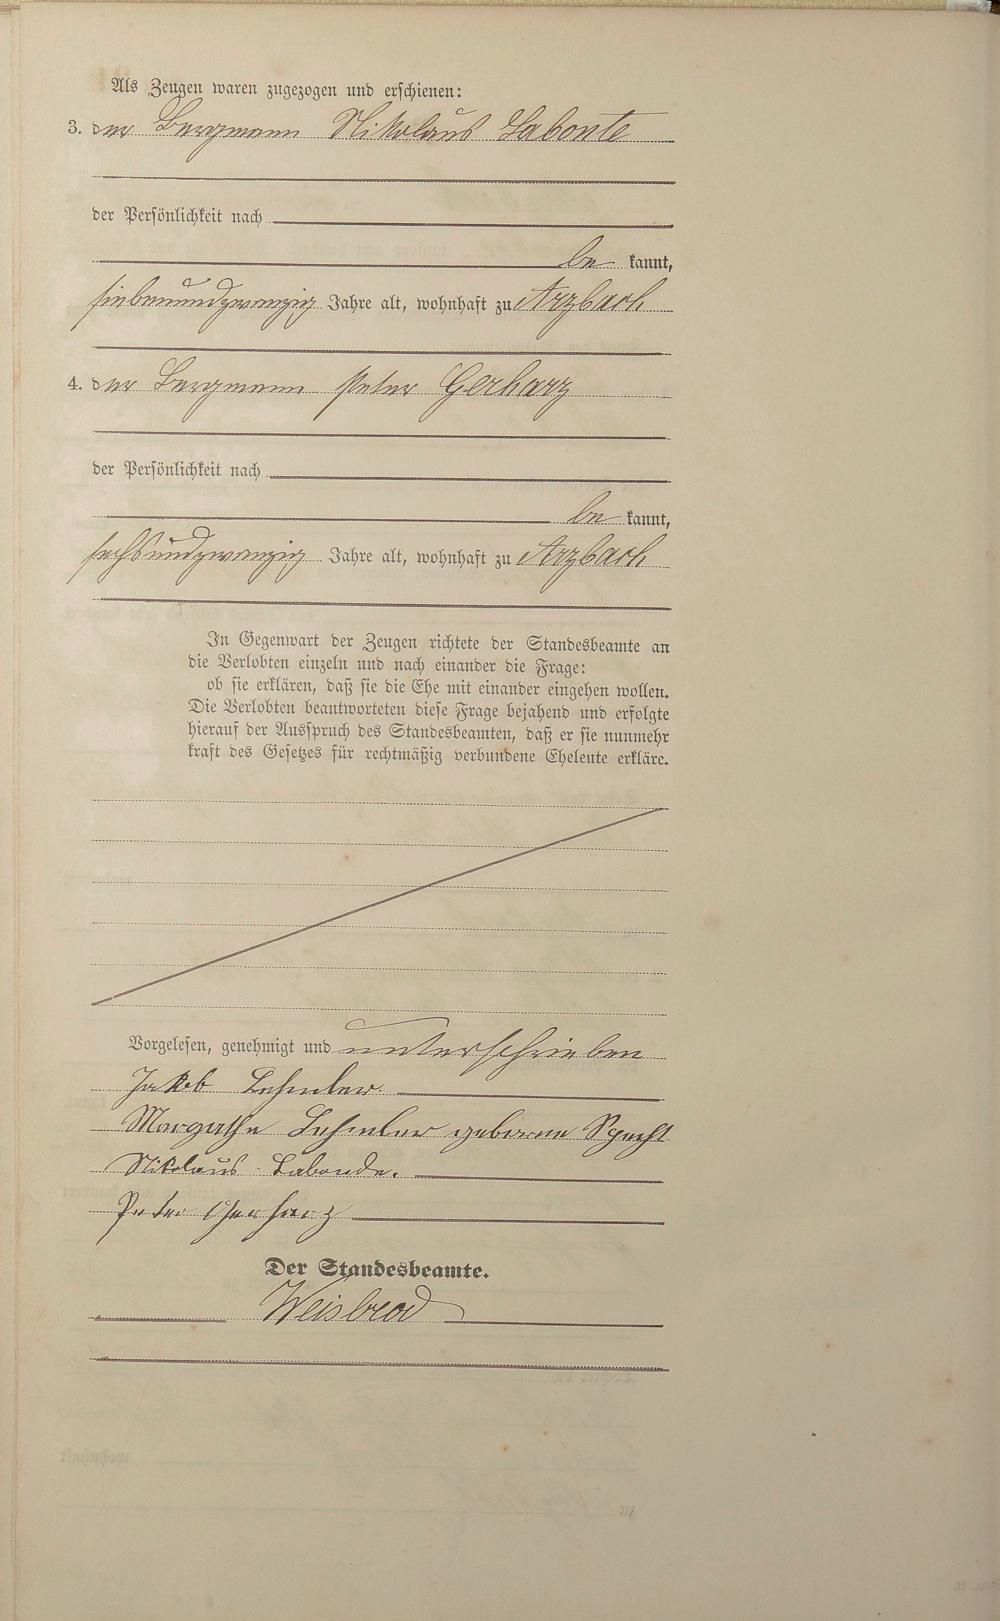 Als Zeugen waren zugezogen und erschienen:
3. der Bergmann Nikolaus Labonte
der Persönlichkeit nach
be kannt,
siebenundzwanzig Jahre alt, wohnhaft zu Arzbach
4. der Bergmann Peter Gerharz
der Persönlichkeit nach
be kannt,
sechsundzwanzig Jahre alt, wohnhaft zu Arzbach
In Gegenwart der Zeugen richtete der Standesbeamte an
die Verlobten einzeln und nach einander die Frage:
ob sie erklären, daß sie die Ehe mit einander eingehen wollen.
Die Verlobten beantworteten diese Frage bejahend und erfolgte
hierauf der Ausspruch des Standesbeamten, daß er sie nunmehr
kraft des Gesetzes für rechtmäßig verbundene Eheleute erkläre.
Vorgelesen, genehmigt und unterschrieben
Jakob Lehmler
Margathe Lehmler geborene Specht
Nikolaus Labonde.
Peter Gerharz
Der Standesbeamte.
Weisbrod